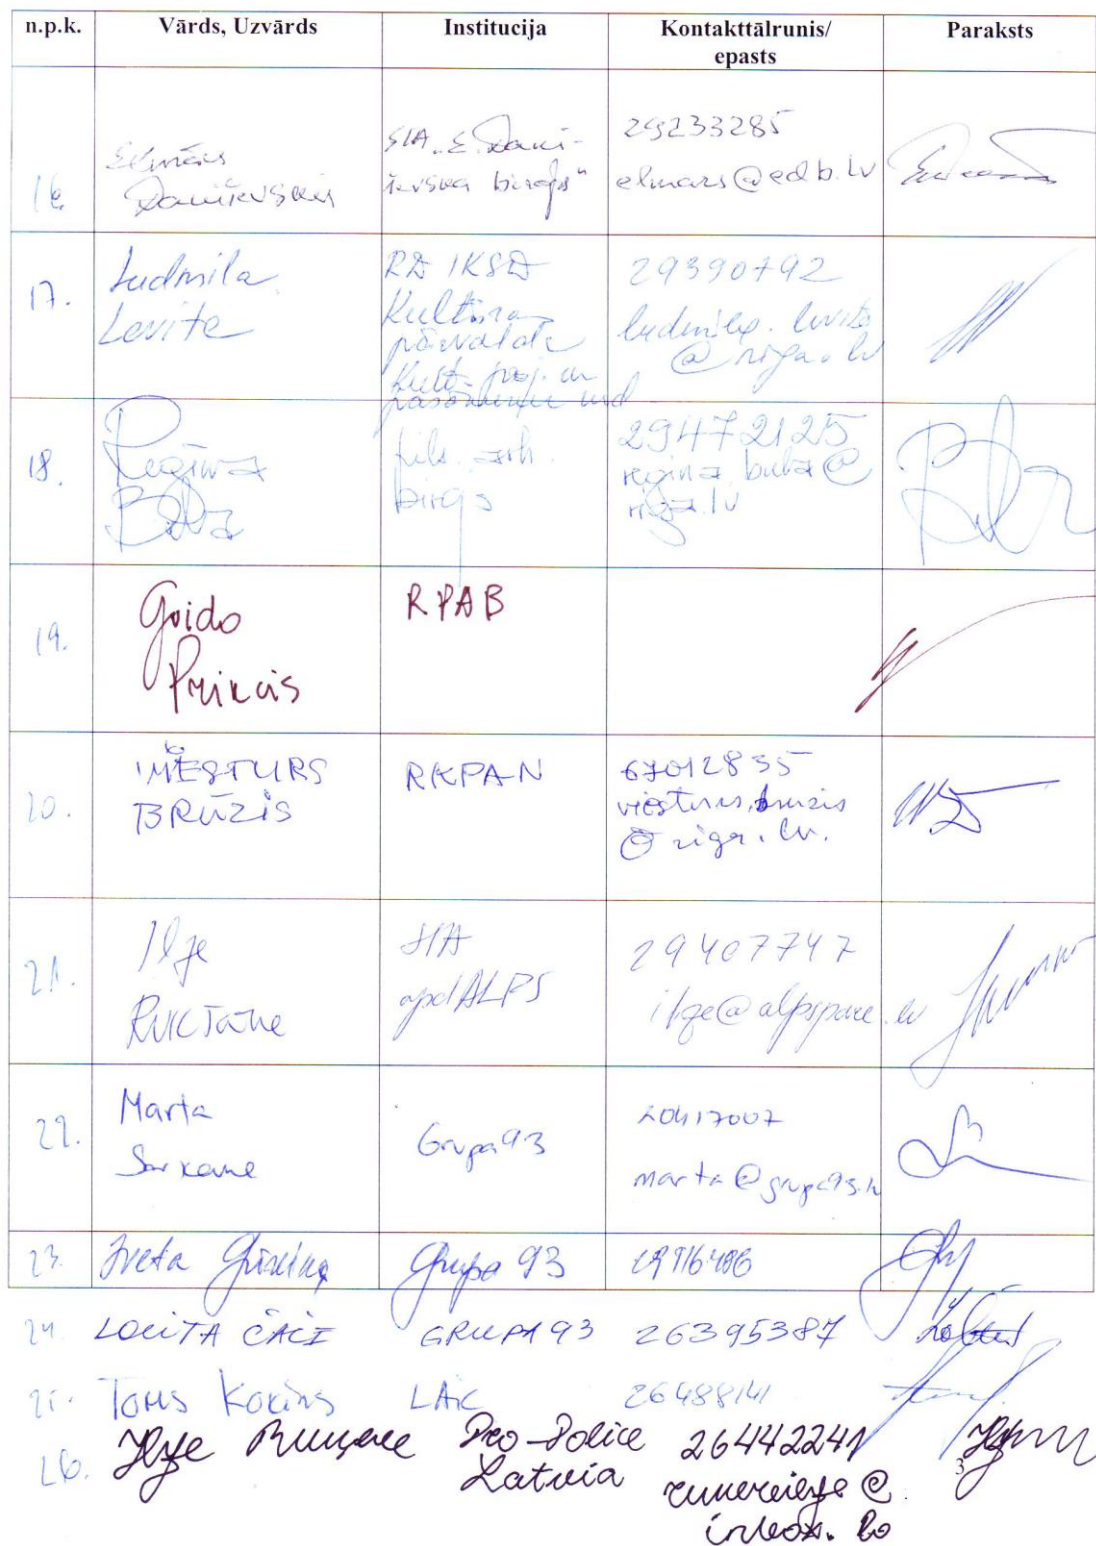 n.p.k. Vārds, Uzvārds Institucija Kontakttālrunis/ Paraksts
epasts
16
Elmārs
Daniševskis
SIA "E. Dani-
ševska birojs"
29233285
elmars@edb.lv
17.
Ludmila
Levite
RD IKSD
Kultūras
pārvalde
29390792
@riga.lv
18.
Regīna
Buba
arh.
birojs
29472125
regina.buba@
riga.lv
19.
Guido
Princis
RPAB
20.
VIESTURS
BRŪZIS
RKPAN
67012835
viesturs.bruzis
@riga.lv.
21.
Ilze
Rukšāne
SIA
ALPS
29407747
ilze@alpspace.lv
22.
Marta
Sarkane
Grupa93
20417007
marta@grupa93.lv
23. Iveta Grupa 93 29116486
24. LOLITA ČAČE GRUPA 93 26395387
25. Toms Kokins LAIC 26488141
26. Ilze Pro-Police 26442241
Latvia
3
@
inbox.lv